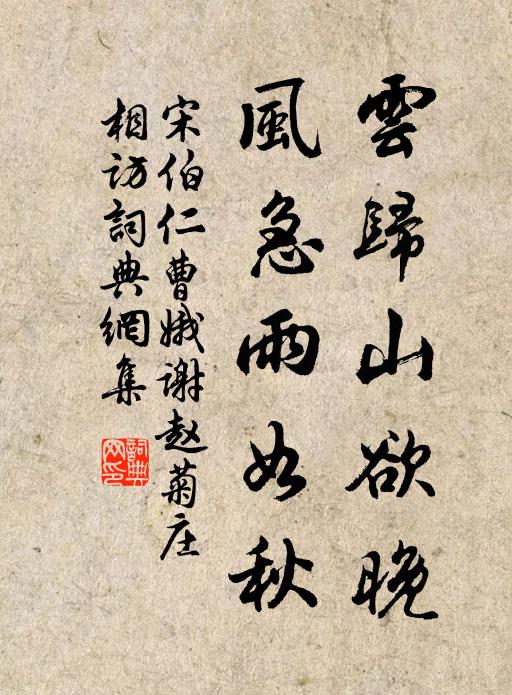 雲歸山欲晚
風急雨如秋
宋伯仁曹娥谢赵菊庄
相访詞典網集
詞典
网印